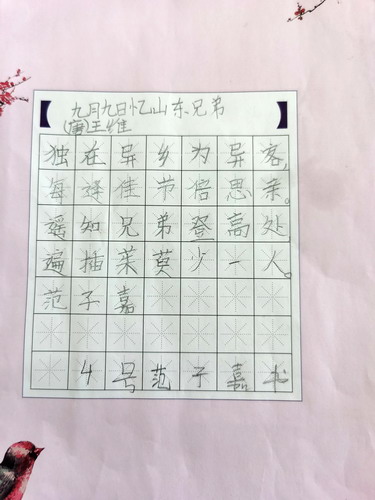 九月九日忆山东兄弟
(唐)王维
独在异乡为异客,
每逢佳节倍思亲。
遥知兄弟登高处
遍插茱萸少一人。
范子嘉
4号范子嘉书